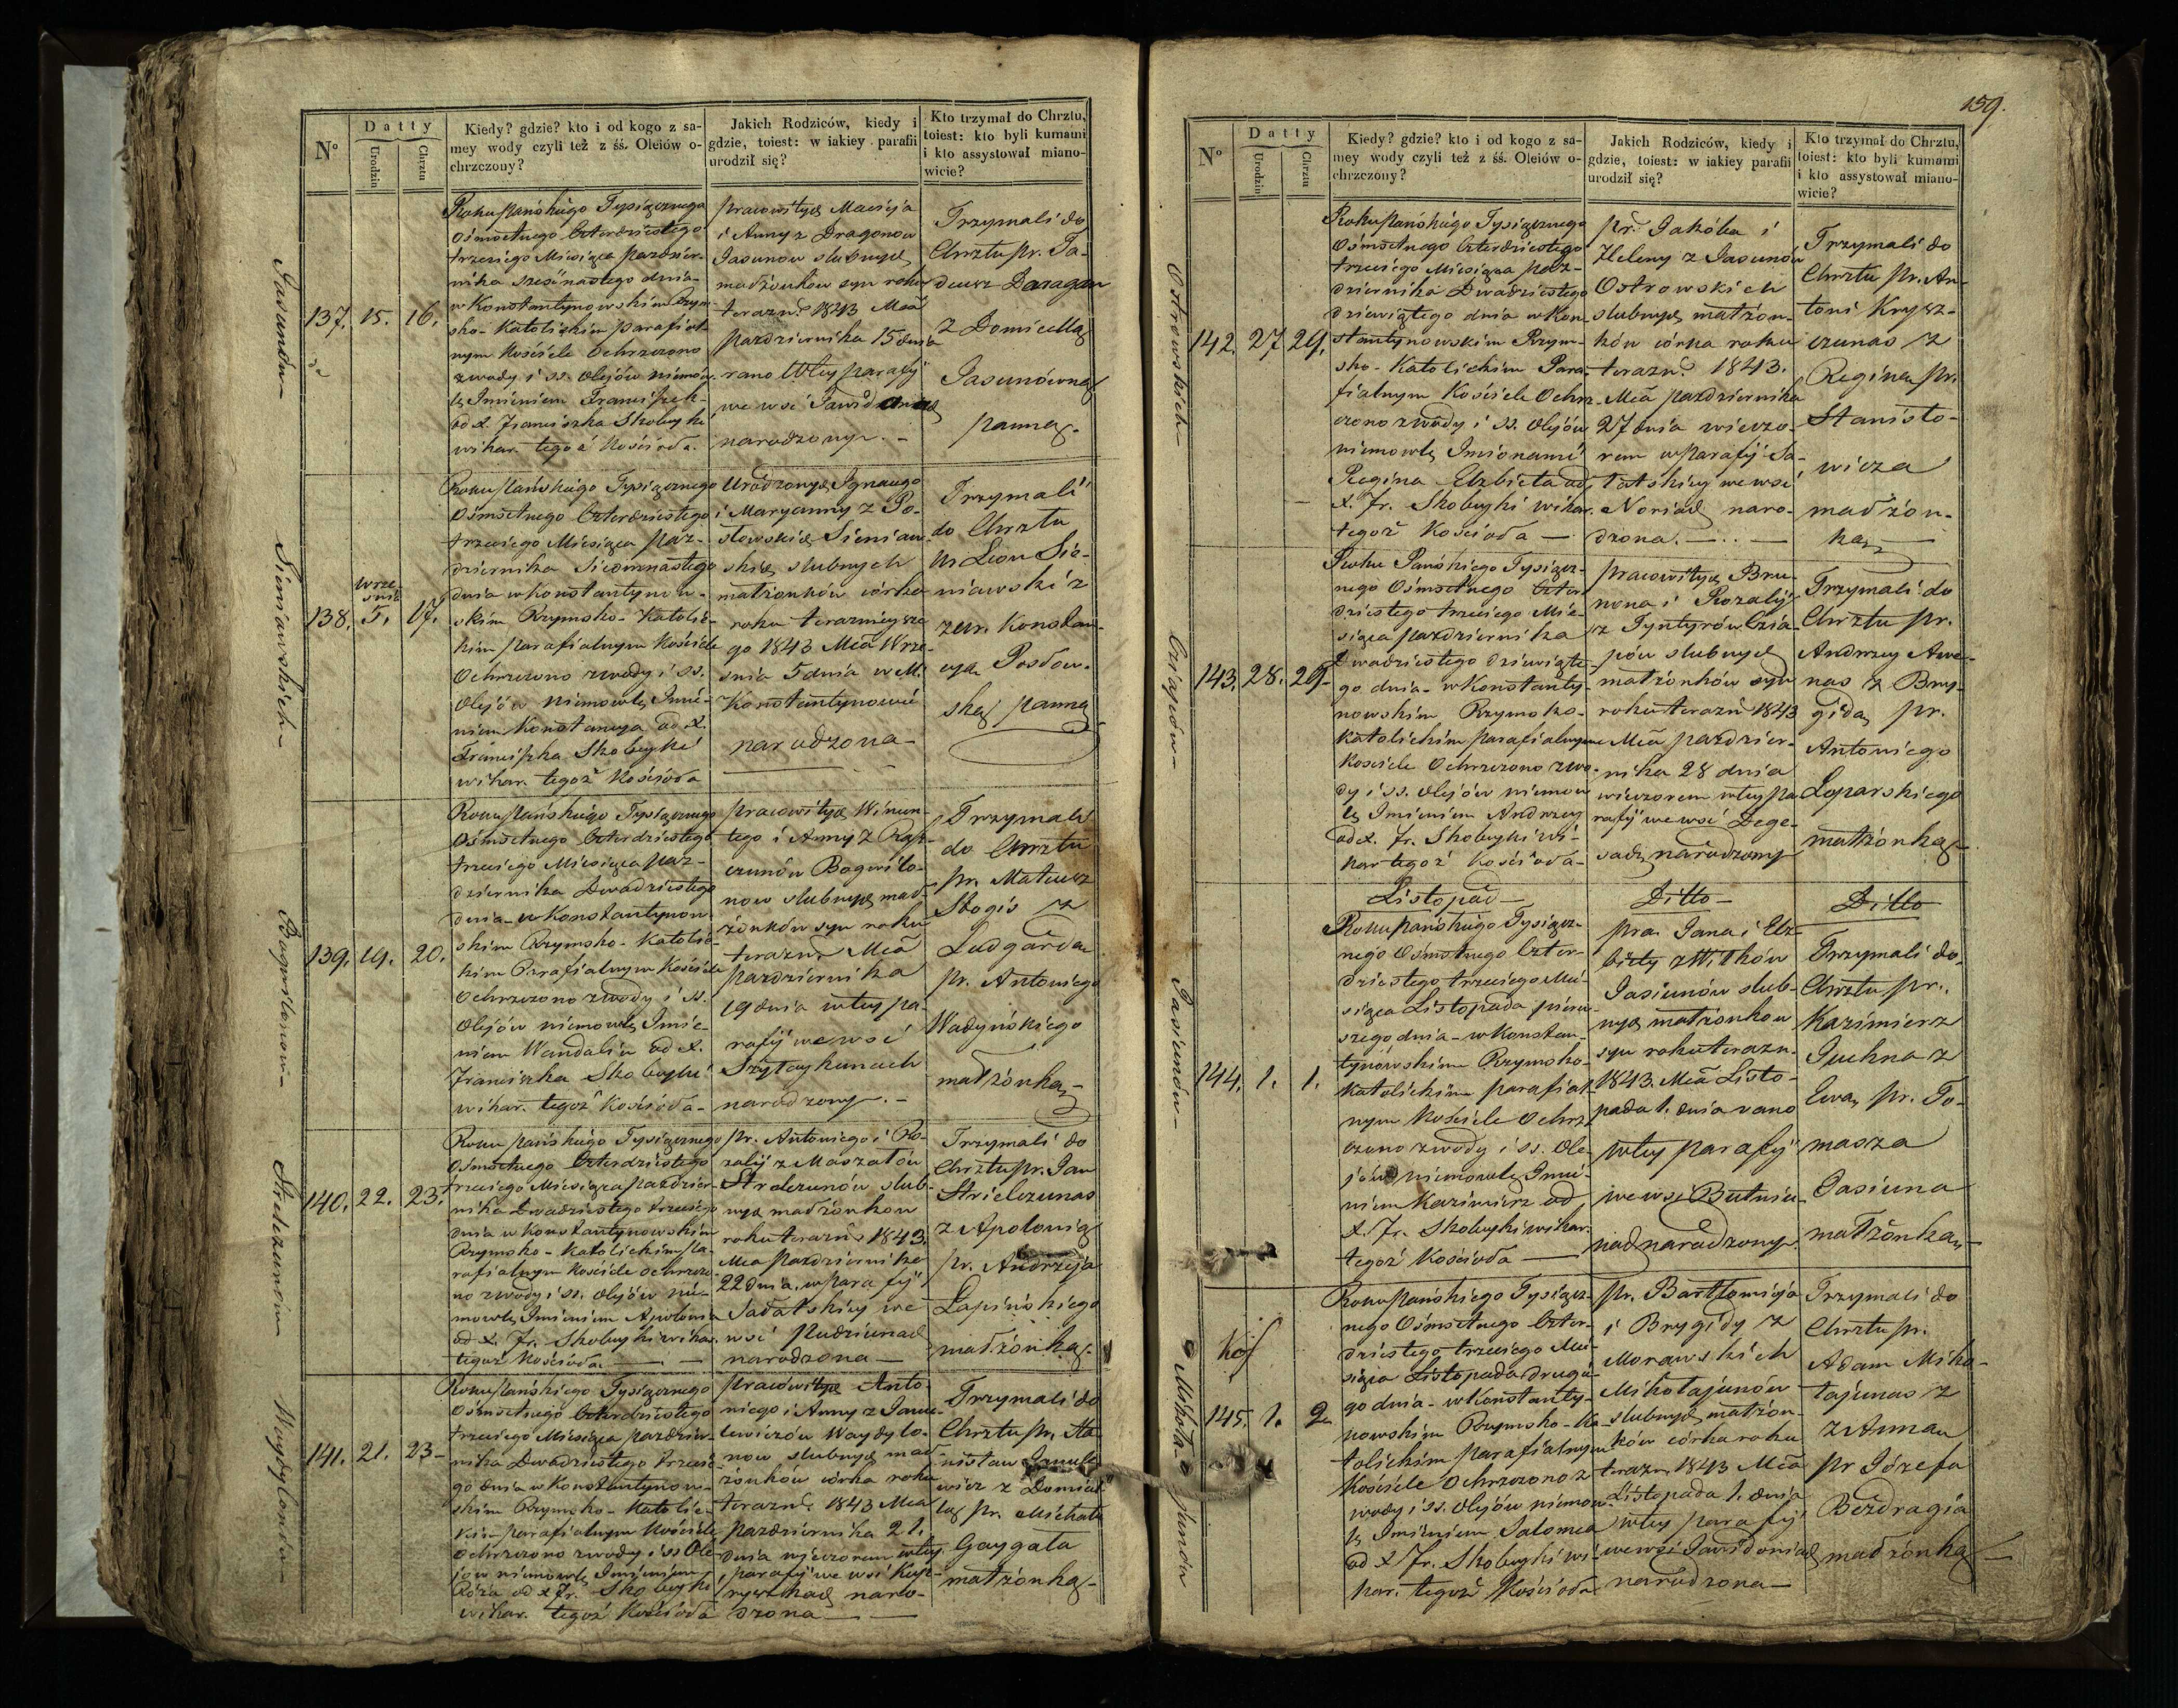 N°
Datty
Urodzin
Chrztu
Kiedy? gdzie? kto i od kogo z sa-
mey wody czyli też z śś. Oleiów o-
chrzczony?
Jakich Rodziców, kiedy i
gdzie, toiest: w iakiey parafii
urodził się?
Kto trzymał do Chrztu,
toiest: kto byli kumami
i kto assystował miano-
wicie?
137. 15. 16.
Roku Pańskiego Tysiącznego
Ośmsetnego Czterdziestego
trzeciego Miesiąca Paździer-
nika szesnastego dnia
w Konstantynowskim Rzym-
sko-Katolickim Parafial-
nym Kościele Ochrzczono
z wody i ss. Olejów niemow-
lę Imieniem Franciszek
od X. Franciszka Skobeyki
wikar. tegoż Kościoła.
pracowitych Macieja
i Anny z Dragonow
Jasunow slubnych
małżonków syn roku
terazn. 1843 Mca
Października 15 dnia
rano w tey parafij
we wsi
narodzony. –
Trzymali do
Chrztu pr. Ta-
deusz Daragan
z Domicellą
Jasunówną
panną.
Sieniawskich
138. Wrześ. 5. 17.
Roku Pańskiego Tysiącznego
Ośmsetnego Czterdziestego
trzeciego Miesiąca Paź-
dziernika Siedmnastego
dnia w Konstantynow-
skim Rzymsko-Katolic-
kim parafialnym Kościele
Ochrzczono z wody i ss.
Olejów niemowlę Imie-
niem Konstancya od X.
Franciszka Skobeyki
wikar. tegoż Kościoła
Urodzonych Ignacego
i Maryanny z Po-
słowskich Sieniaw-
skich slubnych
małżonków córka
roku teraznieysze
go 1843 Mca Wrze-
snia 5 dnia w M.
Konstantynowie
narodzona –
Trzymali
do Chrztu
Ur Leon Sie-
niawski z
z Ur. Konstan-
cyą Posłow-
ską panną
139. 19. 20.
Roku Pańskiego Tysiącznego
Ośmsetnego Czterdziestego
trzeciego Miesiąca Paź-
dziernika Dwudziestego
dnia – w Konstantynow-
skim Rzymsko-Katolic-
kim Parafialnym Kościele
Ochrzczono z wody i ss.
Olejów niemowlę Imie-
niem Wandalin od X.
Franciszka Skobeyki
wikar. tegoż Kościoła –
pracowitych Wincen-
tego i Anny z
Bogwiło-
now slubnych mał-
żonków syn roku
terazn. Mca
Października
19 dnia w tey pa-
rafij we wsi
narodzony. –
Trzymali
do Chrztu
pr. Mateusz
Stogis z
Ludgardą
pr. Antoniego
Wadyńskiego
małżonką –
140. 22. 23.
Roku Pańskiego Tysiącznego
Ośmsetnego Czterdziestego
trzeciego Miesiąca Paździer-
nika Dwudziestego trzeciego
dnia w Konstantynowskim
Rzymsko-Katolickim Pa-
rafialnym Kościele Ochrzczo-
no z wody i ss. Olejów nie-
mowlę Imieniem Apolonia
od X. Fr. Skobeyki wikar.
tegoż Kościoła. –
pr. Antoniego i Ro-
zalij z Maszałów
Strelczunów slub-
nych małżonkow
roku terazn. 1843.
Mca Października
22 dnia, w parafij
Sadatskiey we
wsi Pudziunach
narodzona –
Trzymali do
Chrztu pr. Jan
Strielczunas
z Apolonią
pr. Andrzeja
Łapińskiego
małżonką.
141. 21. 23 –
Roku Pańskiego Tysiącznego
Ośmsetnego Czterdziestego
trzeciego Miesiąca Paździer-
nika Dwudziestego trzecie-
go dnia w Konstantynow-
skim Rzymsko-Katolic-
kim parafialnym Kościele
Ochrzczono z wody i ss Ole-
jow niemowlę Imieniem
Róża od X Fr. Skobeyki
wikar. tegoż Kościoła
pracowitych Anto-
niego i Anny z
Waydyło-
now slubnych mał-
żonków córka roku
terazn. 1843 Mca
Października 21.
dnia wieczorem w tey
parafij we wsi
naro-
dzona –
Trzymali do
Chrztu pr. Sta-
nisław
z Domicel-
lą pr. Michała
Gaygała
małżonką –
159.
N°
Datty
Urodzin
Chrztu
Kiedy? gdzie? kto i od kogo z sa-
mey wody czyli też z śś. Oleiów o-
chrzczony?
Jakich Rodziców, kiedy i
gdzie, toiest: w iakiey parafii
urodził się?
Kto trzymał do Chrztu,
toiest: kto byli kumami
i kto assystował miano-
wicie?
Ostrowskich –
142. 27 29.
Roku Pańskiego Tysiącznego
Ośmsetnego Czterdziestego
trzeciego Miesiąca Paź-
dziernika Dwudziestego
dziewiątego dnia w Kon-
stantynowskim Rzym-
sko-Katolickim Para-
fialnym Kościele Ochrz-
czono z wody i ss. Olejów
niemowlę Imionami
Regina Elzbieta od
X. Fr. Skobeyki wikar.
tegoż Kościoła –
pr. Jakóba i
Heleny z Jasunów
Ostrowskich
slubnych małżon-
ków córka roku
terazn. 1843.
Mca października
27 dnia wieczo-
rem w Parafij Sa-
tatskiey we wsi
Noriach naro-
dzona. –
Trzymali do
Chrztu pr. An-
toni Krysz-
czunas z
Reginą pr.
Stanisło-
wicza
małżon-
ką –
143. 28. 29.
Roku Pańskiego Tysiącz-
nego Ośmsetnego Czter-
dziestego trzeciego Mie-
siąca października
Dwudziestego dziewiąte-
go dnia – w Konstanty-
nowskim Rzymsko-
Katolickim parafialnym
Kosciele Ochrzczono z wo-
dy i ss. Olejów niemow
lę Imieniem Andrzey
od X. Fr. Skobeyki wi-
kar tegoż Kościoła –
pracowitych Bru-
nona i Rozalij
z Tyntyrów Czia-
pów slubnych
małżonków syn
roku terazn 1843
Mca paździer-
nika 28 dnia
wieczorem w tey pa
rafij we wsi Dege-
sach narodzony
Trzymali do
Chrztu pr.
Andrzey Awe-
nas z Bry-
gidą pr.
Antoniego
Łoparskiego
małżonką –
Listopad –
Ditto –
Ditto
Jasiunów –
144. 1. 1.
Roku Pańskiego Tysiącz-
nego Ośmsetnego Czter-
dziestego trzeciego Mie-
siąca Listopada pierw-
szego dnia – w Konstan-
tynowskim Rzymsko-
Katolickim parafial-
nym Kościele Ochrz
czono z wody i ss. Ole-
jów niemowle Imie-
niem Kazimierz od
X. Fr. Skobeyki wikar.
tegoż Kościoła –
prac. Jana i Elz-
biety z Witków
Jasiunów slub-
nych małżonkow
syn roku terazn.
1843. Mca Listo-
pada 1. dnia rano
w tey parafij
we wsi Butniu-
nach narodzony.
Trzymali do
Chrztu pr.
Kazimierz
Juchna z
Ewą pr. To-
masza
Jasiuna
małżonką –
145. 1. 2
Roku Pańskiego Tysiącz-
nego Ośmsetnego Czter-
dziestego trzeciego Mie-
siąca Listopada drugie-
go dnia – w Konstanty-
nowskim Rzymsko-Ka-
tolickim parafialnym
Kościele Ochrzczono z
wody i ss. Olejów niemow-
lę Imieniem Salomea
od X Fr. Skobeyki wi-
kar. tegoż Kościoła
pr. Bartłomieja
i Brygidy z
Morawskich
Mikołajunów
slubnych małżon-
ków córka roku
terazn 1843 Mca
Listopada 1. dnia
w tey parafij
we wsi Jawidoniach
narodzona –
Trzymali do
Chrztu pr.
Adam Miko-
łajunas z
z Anną
pr Józefa
Bezdragia
małżonką –